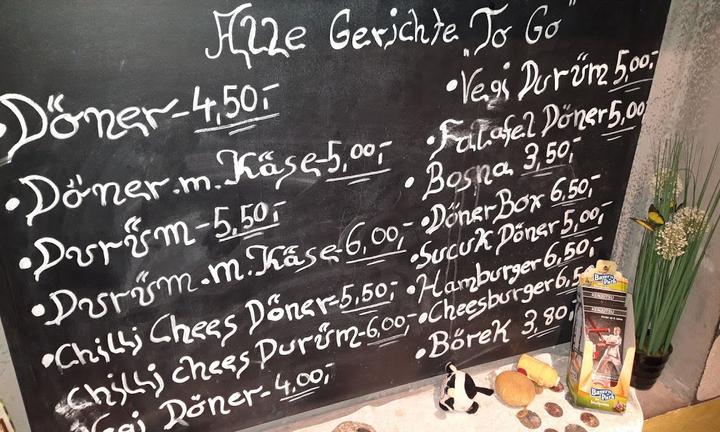 Alle Gerichte "To Go"
• Döner - 4,50,-
• Döner.m.Käse - 5,00,-
• Durüm - 5,50,-
• Durüm.m.Käse - 6,00,-
• Chilli Chees Döner - 5,50,-
Chilli chees Durüm - 6,00,-
Vegi Döner - 4,00,-
• Vegi Durüm 5,00,-
• Falafel Döner 5,00
• Bosna 3,50,-
• Döner Box 6,50,-
• Sucuk Döner 5,00,-
• Hamburger 6,50,-
• Cheesburger 6,5
• Börek 3,80,
Bayern Park
Bayern Park